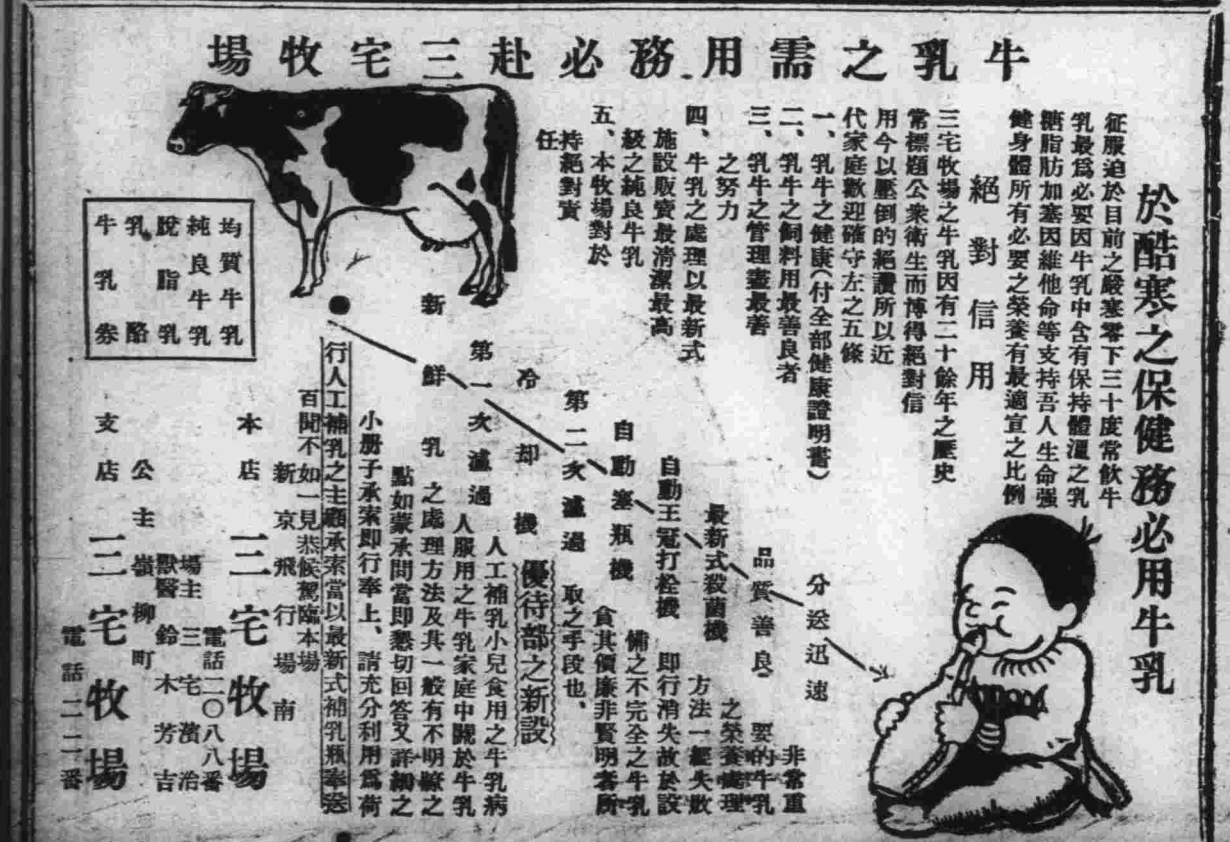 牛乳之需用務必赴三宅牧場
於酷寒之保健務必用牛乳
征服迫於目前之嚴寒零下三十度常飲牛
乳最爲必要因牛乳中含有保持體溫之乳
糖脂肪加塞因維他命等支持吾人生命强
健身體所有必要之榮養有最適宜之比例
絕對信用
三宅牧場之牛乳因有二十餘年之歷史
常標題公衆衛生而博得絕對信
用今以壓倒的絕讚所以近
代家庭歡迎確守左之五條
一、乳牛之健康(付全部健康證明書)
二、乳牛之飼料用最善良者
三、乳牛之管理盡最善
之努力
四、牛乳之處理以最新式
施設販賣最淸潔最高
級之純良牛乳
五、本牧場對於
持絕對責
任
均質牛乳
純良牛乳
脫脂乳
乳酪
牛乳券
新鮮乳
第一次濾過
冷却機
第二次濾過
自動塞瓶機
自動王冠打栓機
最新式殺菌機
品質善良
分送迅速
非常重
要的牛乳
之榮養處理
方法一經失散
即行消失故於設
備之不完全之牛乳
貪其價廉非賢明者所
取之手段也、
優待部之新設
人工補乳小兒食用之牛乳病
人服用之牛乳家庭中關於牛乳
之處理方法及其一般有不明瞭之
點如蒙承問當即懇切回答又詳細之
小册子承索即行奉上、請充分利用爲荷
行人工補乳之主顧承索當以最新式補乳瓶奉送
百聞不如一見恭候駕臨本場
新京飛行場南
本店 三宅牧場
電話二〇八八番
場主 三宅濱治
獸醫 鈴木芳吉
公主嶺柳町
支店 三宅牧場
電話二二番